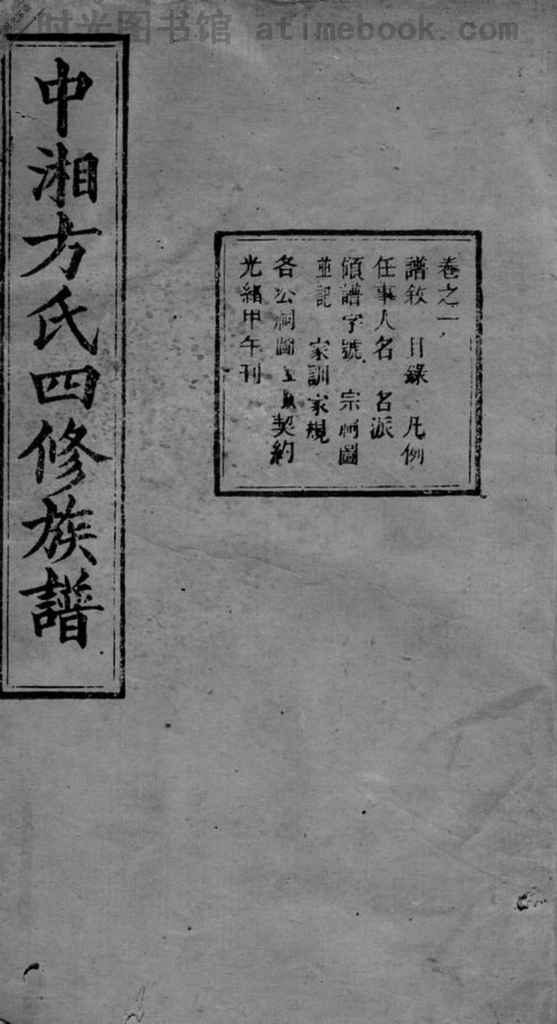 时光图书馆 atimebook.com
卷之一
譜敘 目錄 凡例
任事人名 名派
領譜字號 宗祠圖
並記 家訓家規
各公祠圖 契約
光緒甲午刊
中湘方氏四修族譜